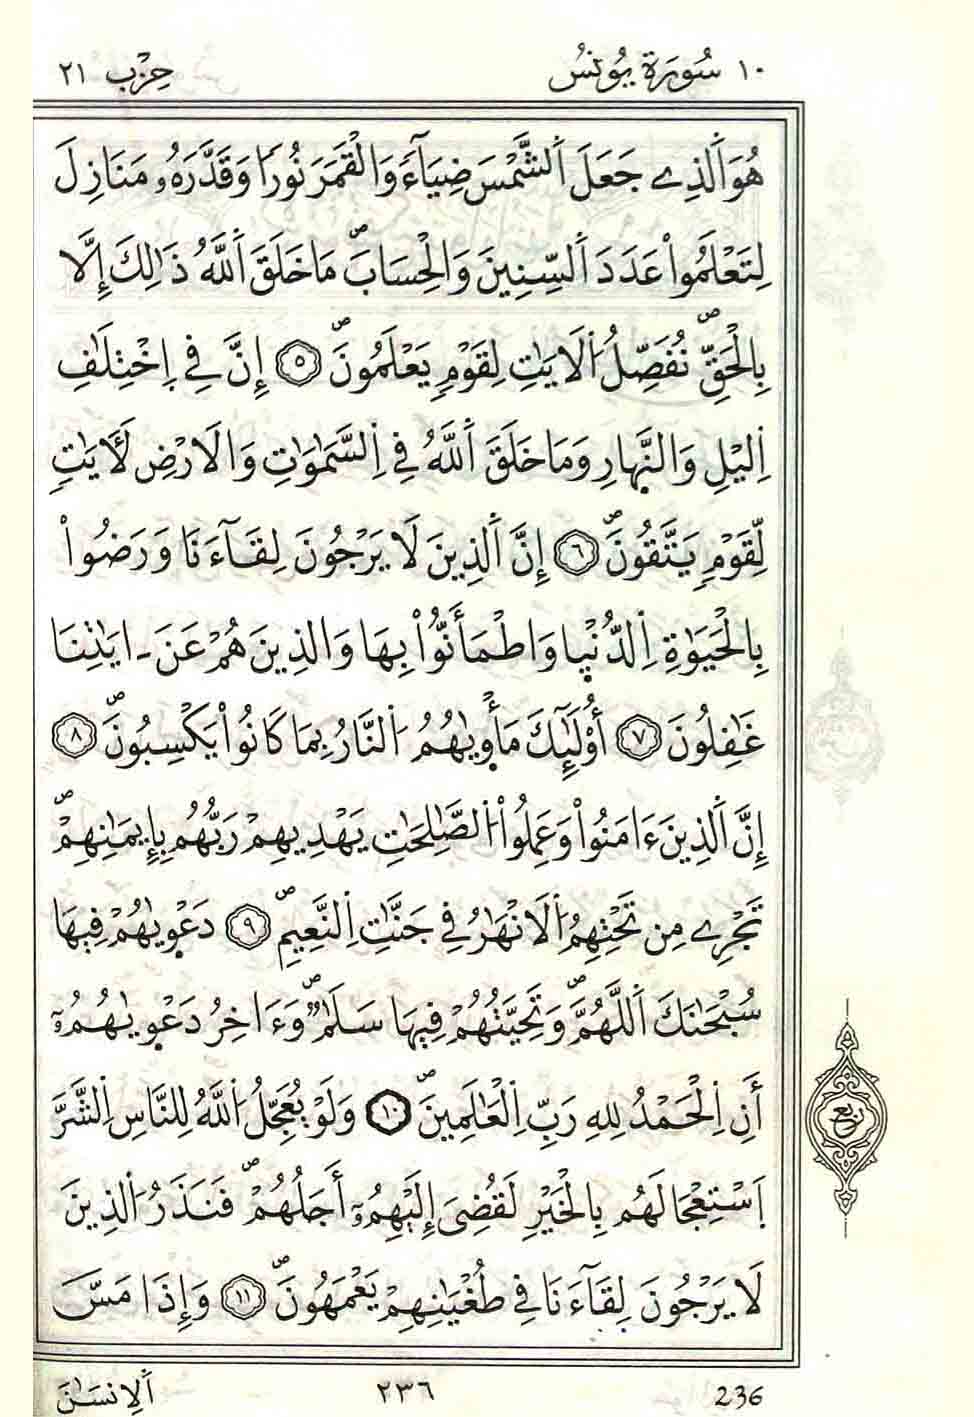 ١٠ سُورَةُ يُونُسَ حِزْب ٢١
هُوَ اَ۬لذِے جَعَلَ اَ۬لشَّمْسَ ضِيَآءٗ وَالْقَمَرَ نُوراٗ وَقَدَّرَهُۥ مَنَازِلَ
لِتَعْلَمُواْ عَدَدَ اَ۬لسِّنِينَ وَالْحِسَابَۖ مَا خَلَقَ اَ۬للَّهُ ذَٰلِكَ إِلَّا
بِالْحَقِّۖ نُفَصِّلُ اُ۬لَايَٰتِ لِقَوْمٖ يَعْلَمُونَۖ ٥ إِنَّ فِے اِ۪خْتِلَٰفِ
اِ۬ليْلِ وَالنَّه۪ارِ وَمَا خَلَقَ اَ۬للَّهُ فِے اِ۬لسَّمَٰوَٰتِ وَالَارْضِ لَأٓيَٰتٖ
لِّقَوْمٖ يَتَّقُونَۖ ٦ إِنَّ اَ۬لذِينَ لَا يَرْجُونَ لِقَآءَنَا وَرَضُواْ
بِالْحَيَوٰةِ اِ۬لدُّنْي۪ا وَاطْمَأَنُّواْ بِهَا وَالذِينَ هُمْ عَنَ ـ ايَٰتِنَا
غَٰفِلُونَ ٧ أُوْلَٰٓئِكَ مَأْو۪يٰهُمُ اُ۬لنَّارُ بِمَا كَانُواْ يَكْسِبُونَۖ ٨
إِنَّ اَ۬لذِينَ ءَامَنُواْ وَعَمِلُواْ اُ۬لصَّٰلِحَٰتِ يَهْدِيهِمْ رَبُّهُم بِإِيمَٰنِهِمْۖ
تَجْرِے مِن تَحْتِهِمُ اُ۬لَانْهَٰرُ فِے جَنَّٰتِ اِ۬لنَّعِيمِۖ ٩ دَعْو۪يٰهُمْ فِيهَا
سُبْحَٰنَكَ اَ۬للَّهُمَّۖ وَتَحِيَّتُهُمْ فِيهَا سَلَٰمٞۖ وَءَاخِرُ دَعْو۪يٰهُمُۥٓ
أَنِ اِ۬لْحَمْدُ لِلهِ رَبِّ اِ۬لْعَٰلَمِينَۖ ١٠ وَلَوْ يُعَجِّلُ اُ۬للَّهُ لِلنَّاسِ اِ۬لشَّرَّ
اَ۪سْتِعْجَالَهُم بِالْخَيْرِ لَقُضِيَ إِلَيْهِمُۥٓ أَجَلُهُمْۖ فَنَذَرُ اُ۬لذِينَ
لَا يَرْجُونَ لِقَآءَنَا فِے طُغْيَٰنِهِمْ يَعْمَهُونَۖ ١١ وَإِذَا مَسَّ
رُبُع
اَ۬لِانسَٰنَ ٢٣٦ 236